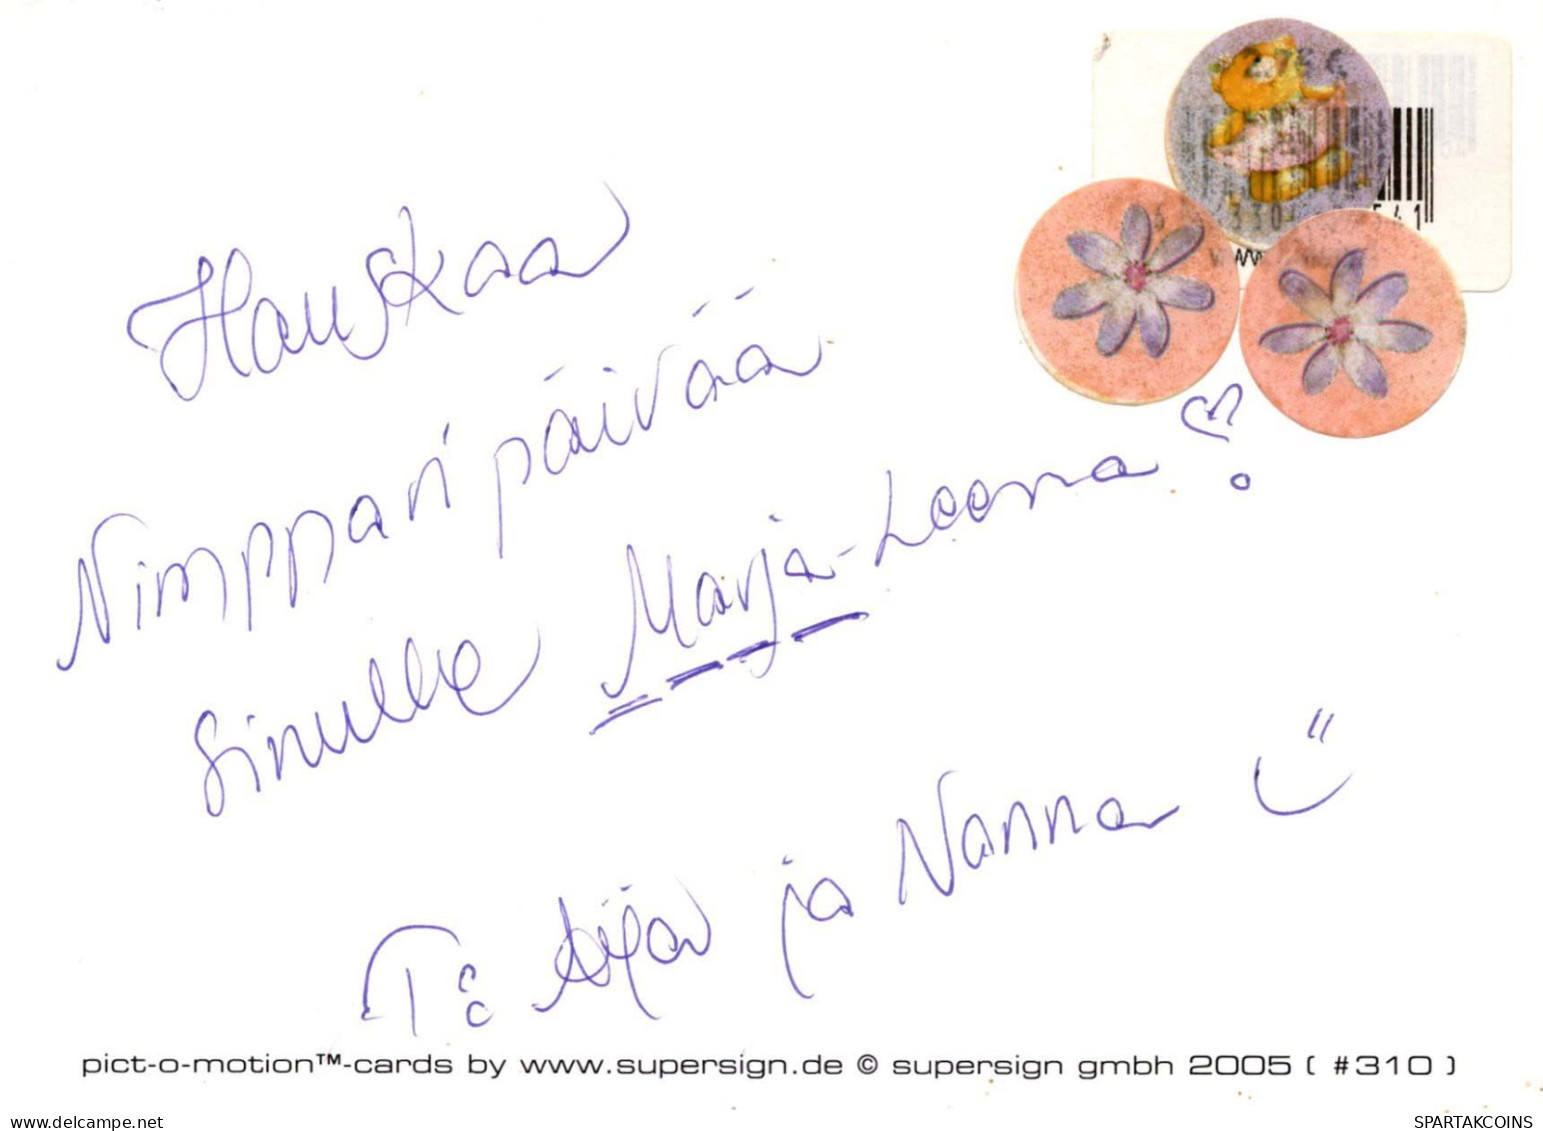 Hauskaa
Nimpparipäivää
Sinulle Marja-Leena
T: Äijä ja Nanna
pict-o-motion™-cards by www.supersign.de © supersign gmbh 2005 ( #310 )
www.delcampe.net
SPARTAKCOINS